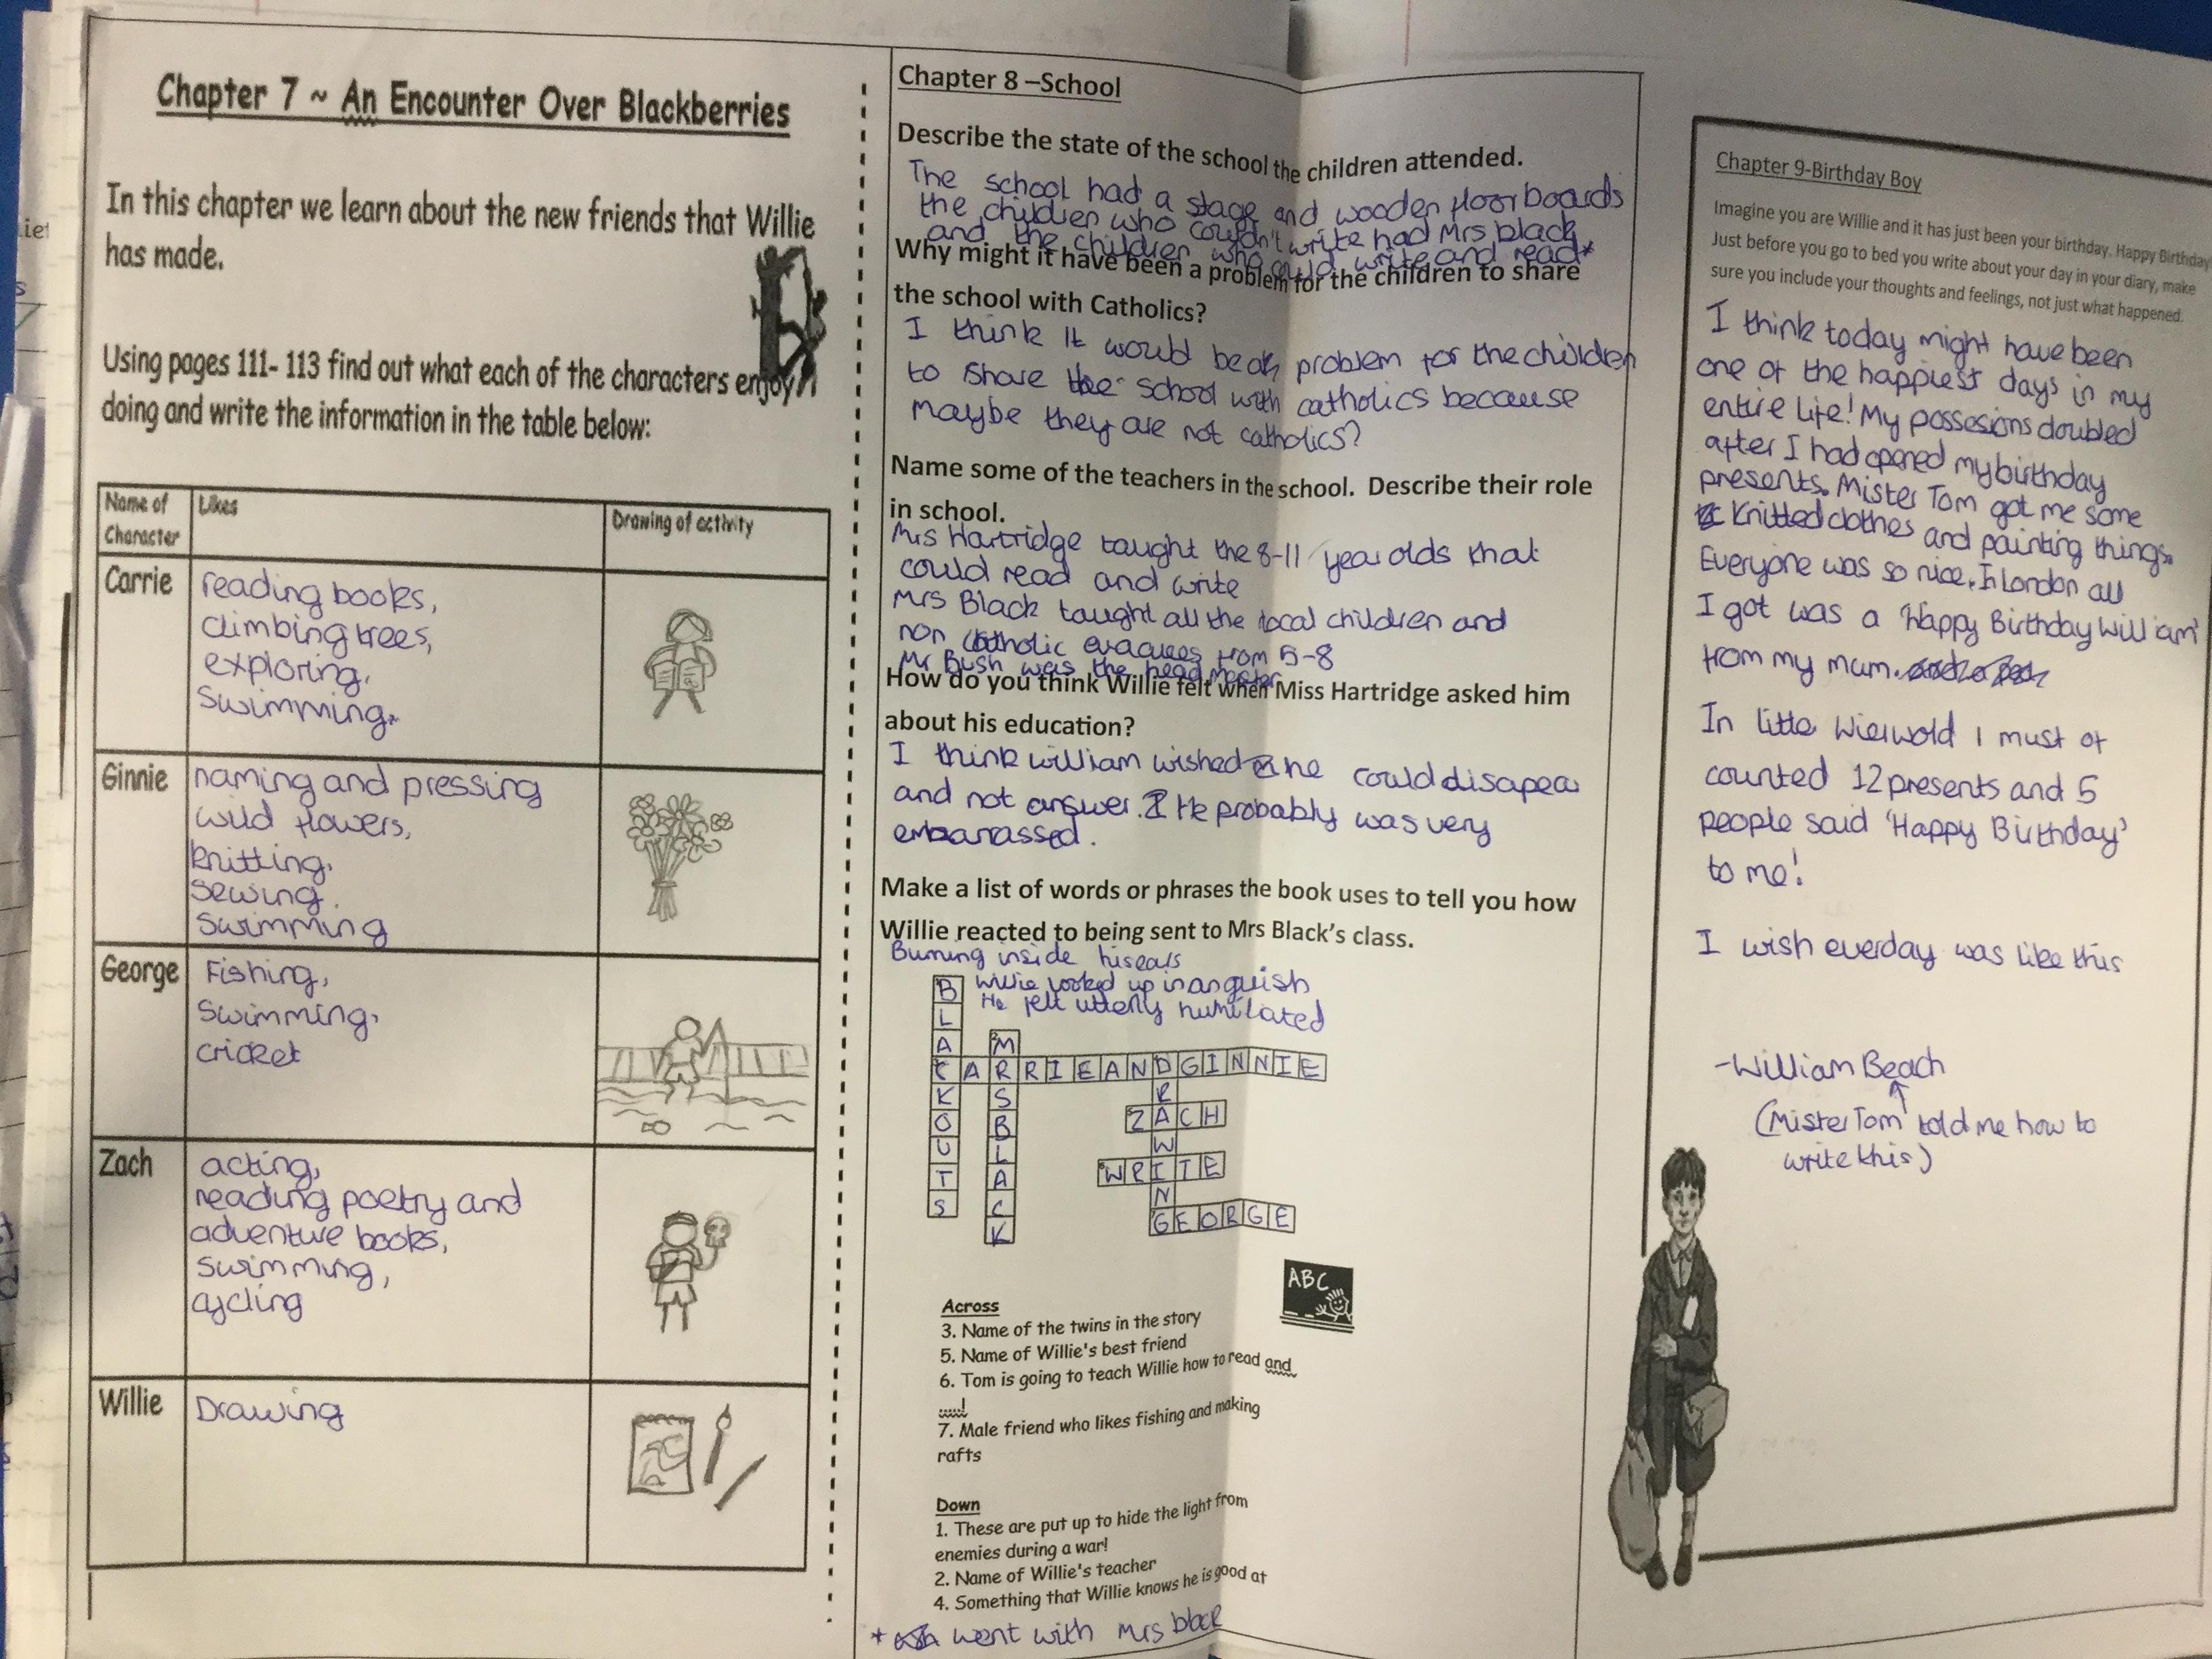 Chapter 7 ~ An Encounter Over Blackberries
In this chapter we learn about the new friends that Willie
has made.
Using pages 111- 113 find out what each of the characters enjoy
doing and write the information in the table below:
Name of
Character
Likes
Drawing of activity
Carrie
reading books,
climbing trees,
exploring,
Swimming.
Ginnie
naming and pressing
wild flowers,
knitting,
sewing.
Swimming
George
Fishing,
Swimming,
cricket
Zach
acting,
reading poetry and
adventure books,
swimming,
cycling
Willie
Drawing
Chapter 8 –School
Describe the state of the school the children attended.
The school had a stage and wooden floor boards
the children who couldn't write had Mrs black
and the children who could write and read*
Why might it have been a problem for the children to share
the school with Catholics?
I think It would be a problem for the children
to share the school with catholics because
maybe they are not catholics?
Name some of the teachers in the school. Describe their role
in school.
Mrs Hartridge taught the 8-11 year olds that
could read and write
Mrs Black taught all the local children and
non catholic evacuees from 5-8
Mr Bush was the head master
How do you think Willie felt when Miss Hartridge asked him
about his education?
I think william wished he could disapear
and not answer. He probably was very
embarrassed.
Make a list of words or phrases the book uses to tell you how
Willie reacted to being sent to Mrs Black's class.
Burning inside his ears
Willie looked up in anguish
He felt utterly humilated
BLACKOUTS
MRSBLACK
CARRIEANDGINNIE
DRAWING
ZACH
WRITE
GEORGE
ABC
Across
3. Name of the twins in the story
5. Name of Willie's best friend
6. Tom is going to teach Willie how to read and
....!
7. Male friend who likes fishing and making
rafts
Down
1. These are put up to hide the light from
enemies during a war!
2. Name of Willie's teacher
4. Something that Willie knows he is good at
* went with Mrs black
Chapter 9-Birthday Boy
Imagine you are Willie and it has just been your birthday. Happy Birthday
Just before you go to bed you write about your day in your diary, make
sure you include your thoughts and feelings, not just what happened.
I think today might have been
one of the happiest days in my
entire life! My possesions doubled
after I had opened my birthday
presents. Mister Tom got me some
Knitted clothes and painting things.
Everyone was so nice. In London all
I got was a 'Happy Birthday William'
from my mum.
In little Wierwold I must of
counted 12 presents and 5
people said 'Happy Birthday'
to me!
I wish everday was like this
-William Beach
(Mister Tom told me how to
write this)